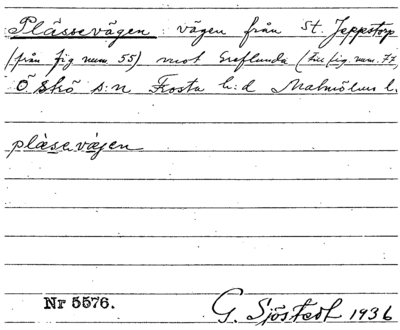 Plåssevägen: vägen från St. Jeppstorp
(från fig num. 55) mot Greflunda (till fig. num. 77,
Öskö s:n Frosta h:d Malmöhus l.
plåsevägen
Nr 5576.
G. Sjöstedt 1936